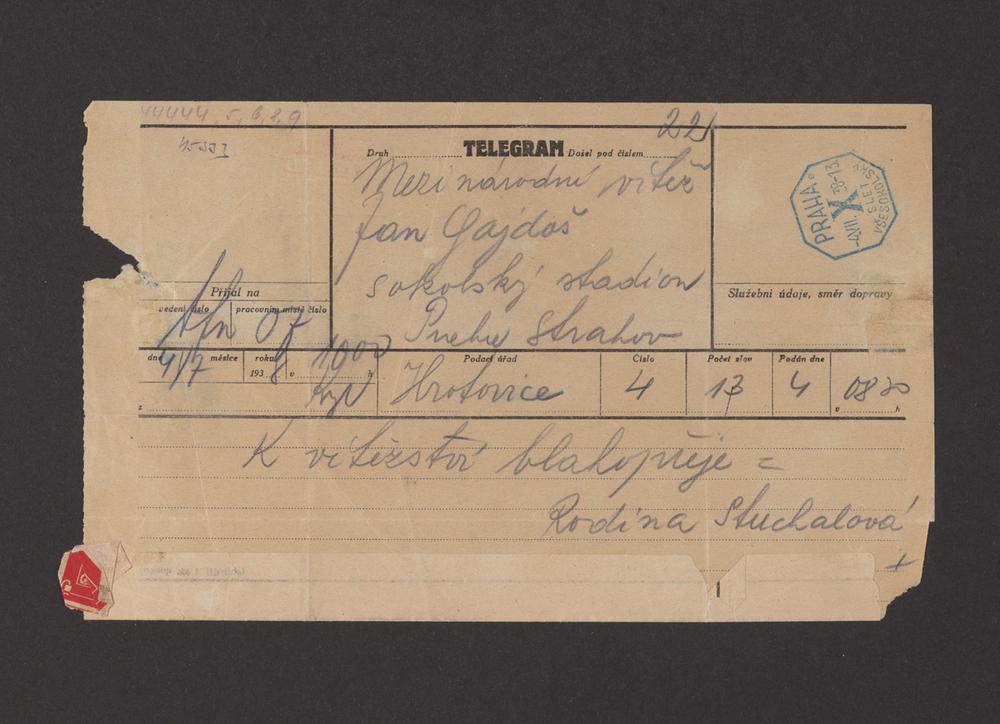 44444, 5, 6, 8, 9
22
Druh TELEGRAM Došel pod číslem
Mezinárodní vítěz
Jan Gajdoš
sokolský stadion
Praha Strahov
PRAHA
X
4.VII. 38-13
SLET
VŠESOKOLSKÝ
Přijal na
vedení číslo pracovním místě číslo
07
Služební údaje, směr dopravy
dne 4/7 měsíce roku 1938 v 1000 h
Podací úřad Číslo Počet slov Podán dne
Hrotovice 4 13 4 0830
z v h
K vítězství blahopřeje =
Rodina Stuchalová
+